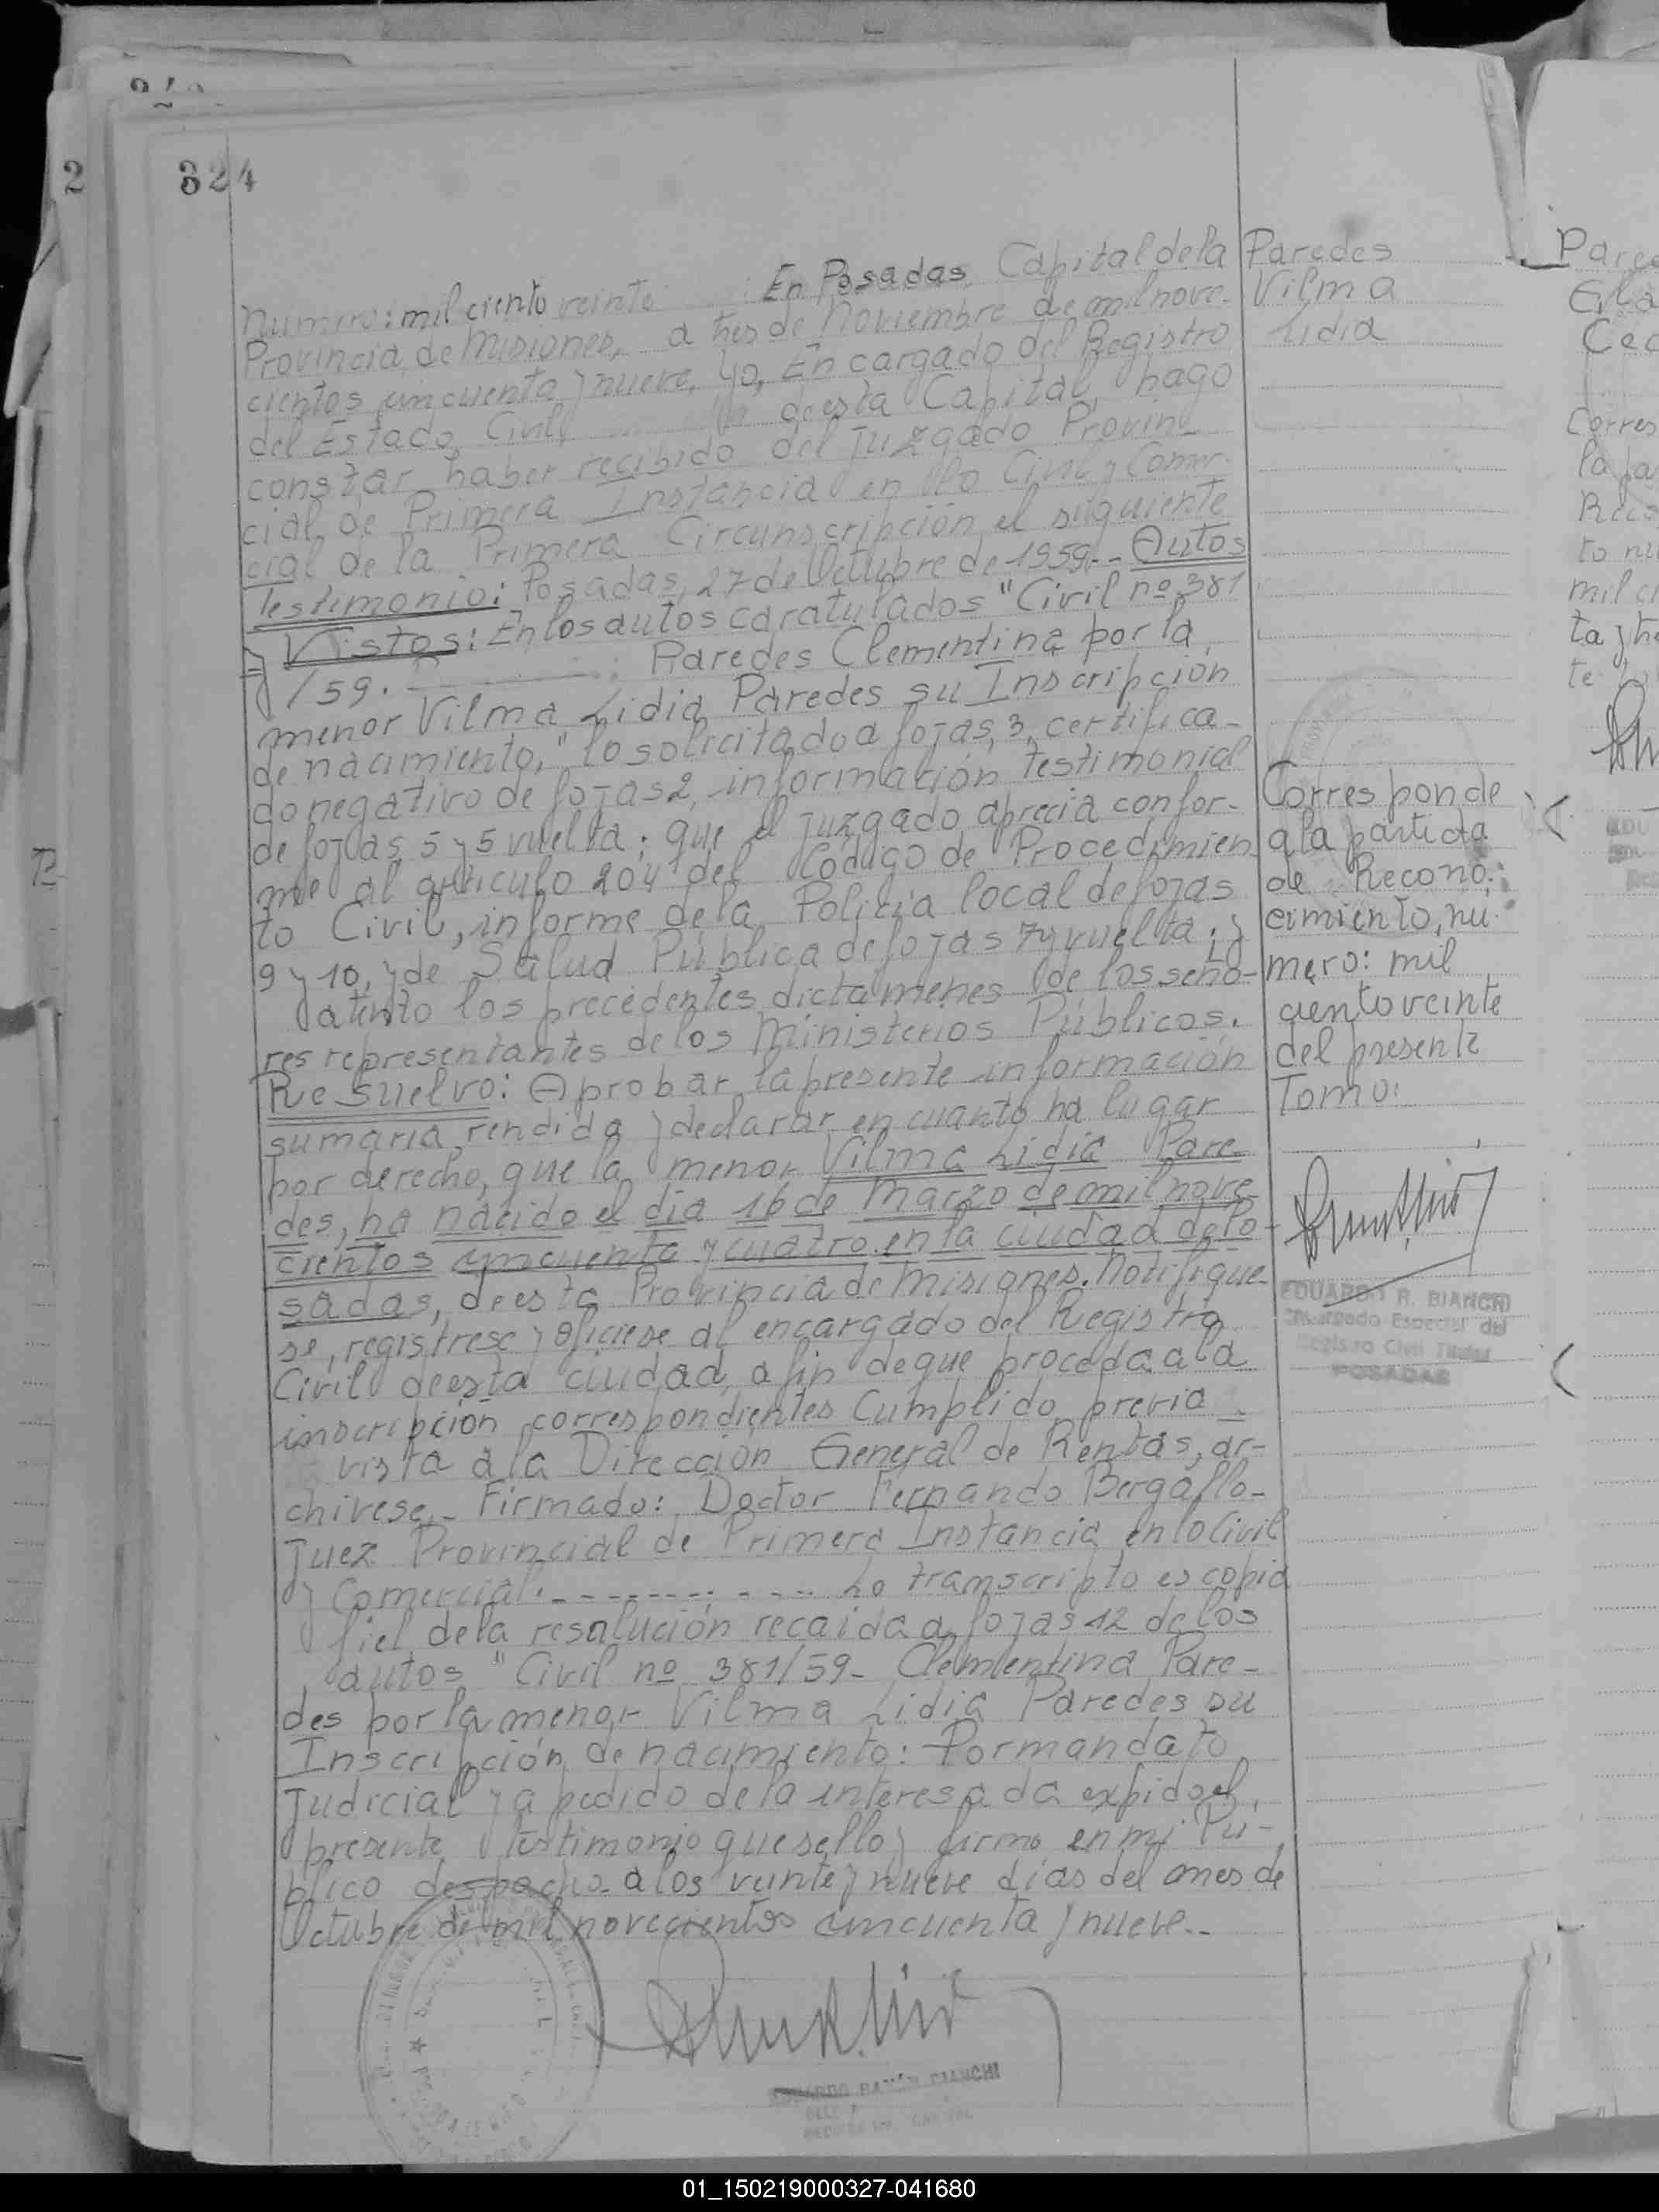 324
2
Numero: mil ciento veinte : En Posadas, Capital de la
Provincia de Misiones, a tres de Noviembre de mil nove-
cientos cincuenta y nueve, yo, Encargado del Registro
del Estado Civil de esta Capital, hago
constar haber recibido del Juzgado Provin-
cial de Primera Instancia en lo Civil y Comer-
cial de la Primera Circunscripción el siguiente
Testimonio: Posadas, 27 de Octubre de 1959.- Autos
y Vistos: En los autos caratulados "Civil nº 381
/59. Paredes Clementina por la
menor Vilma Lidia Paredes su Inscripción
de nacimiento," lo solicitado a fojas, 3, certifica-
do negativo de fojas 2, información testimonial
de fojas 5 y 5 vuelta; que el juzgado aprecia confor-
me al articulo 204 del Codigo de Procedimien
to Civil, informe de la Policia local de fojas
9 y 10, y de Salud Pública de fojas 7 y vuelta; y
atento los precedentes dictamenes de los seño-
res representantes de los Ministerios Públicos.
Resuelvo: Aprobar la presente información
sumaria rendida y declarar en cuanto ha lugar
por derecho, que la menor Vilma Lidia Pare-
des, ha nacido el dia 16 de Marzo de mil nove-
cientos cincuenta y cuatro en la ciudad de Po-
sadas, de esta Provincia de Misiones. Notifique-
se, registrese y oficiese al encargado del Registro
Civil de esta ciudad, a fin de que proceda a la
inscripción correspondientes Cumplido previa
vista a la Dirección General de Rentas, ar-
chivese.- Firmado: Doctor Fernando Bergallo-
Juez Provincial de Primera Instancia en lo Civil
y Comercial.- Lo transcripto es copia
fiel de la resolución recaida a fojas 12 de los
autos "Civil nº 381/59- Clementina Pare-
des por la menor Vilma Lidia Paredes su
Inscripción de nacimiento: Por mandato
Judicial y a pedido de la interesada expido el
presente testimonio que sello y firmo en mi Pú-
blico despacho a los veinte y nueve días del mes de
Octubre de mil novecientos cincuenta y nueve.-
EDUARDO RAMÓN BIANCHI
Paredes
Vilma
Lidia
Corresponde
a la partida
de Recono-
cimiento, nú-
mero: mil
ciento veinte
del presente
Tomo.
EDUARDO R. BIANCHI
Encargado Especial del
Registro Civil Titular
POSADAS
Corres
Reco
to nu
mil ci
01_150219000327-041680